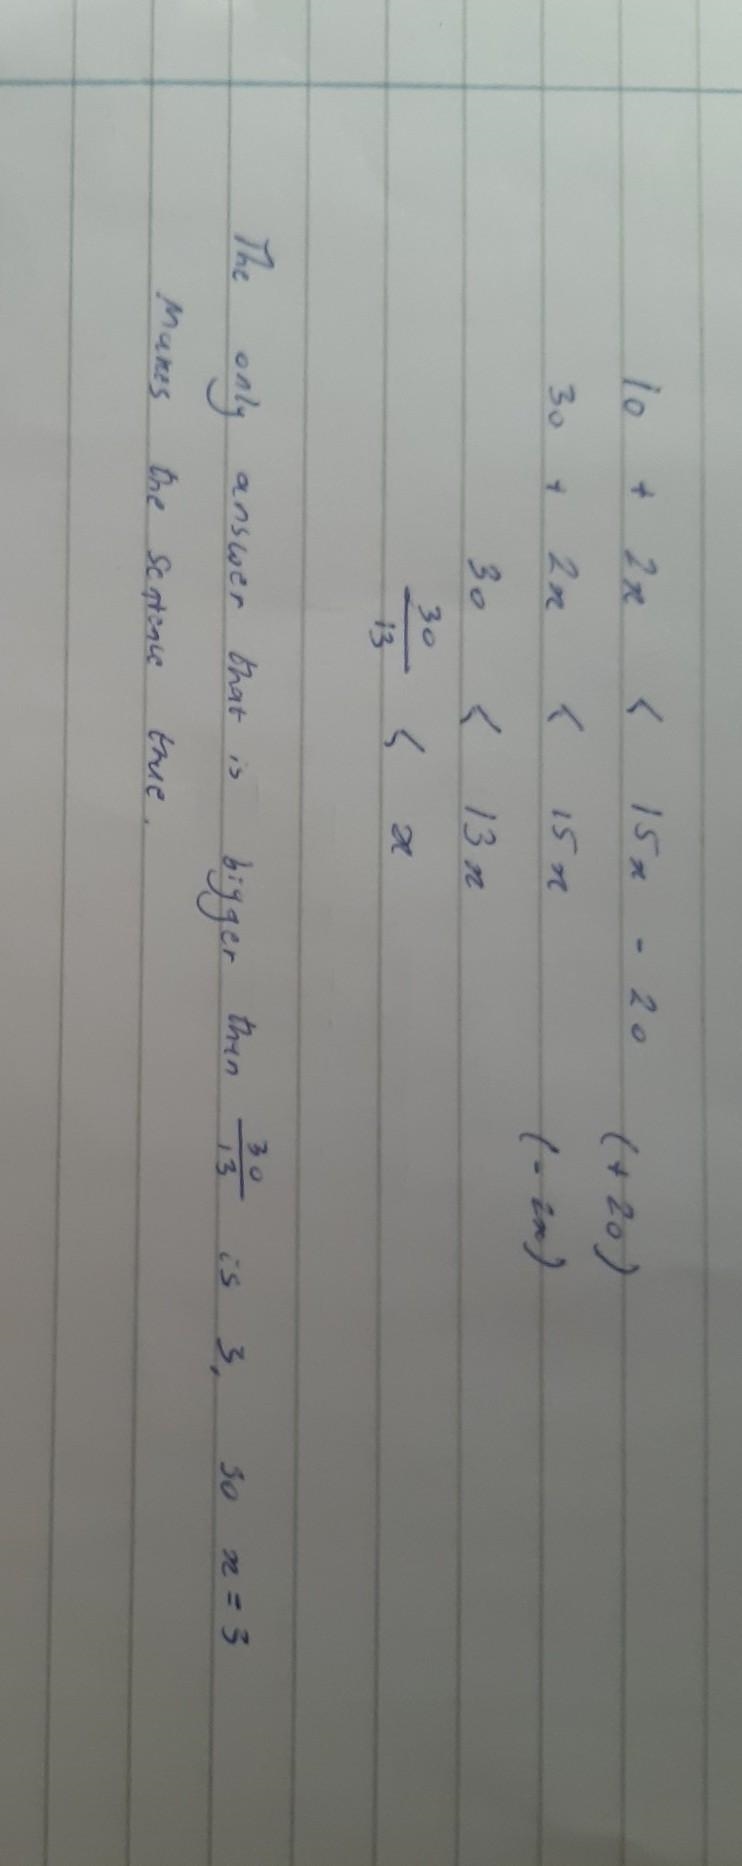 10 + 2x < 15x - 20 (+20)
30 + 2x < 15x (-2x)
30 < 13x
30/13 < x
The only answer that is bigger then 30/13 is 3, so x = 3
Makes the sentence true.